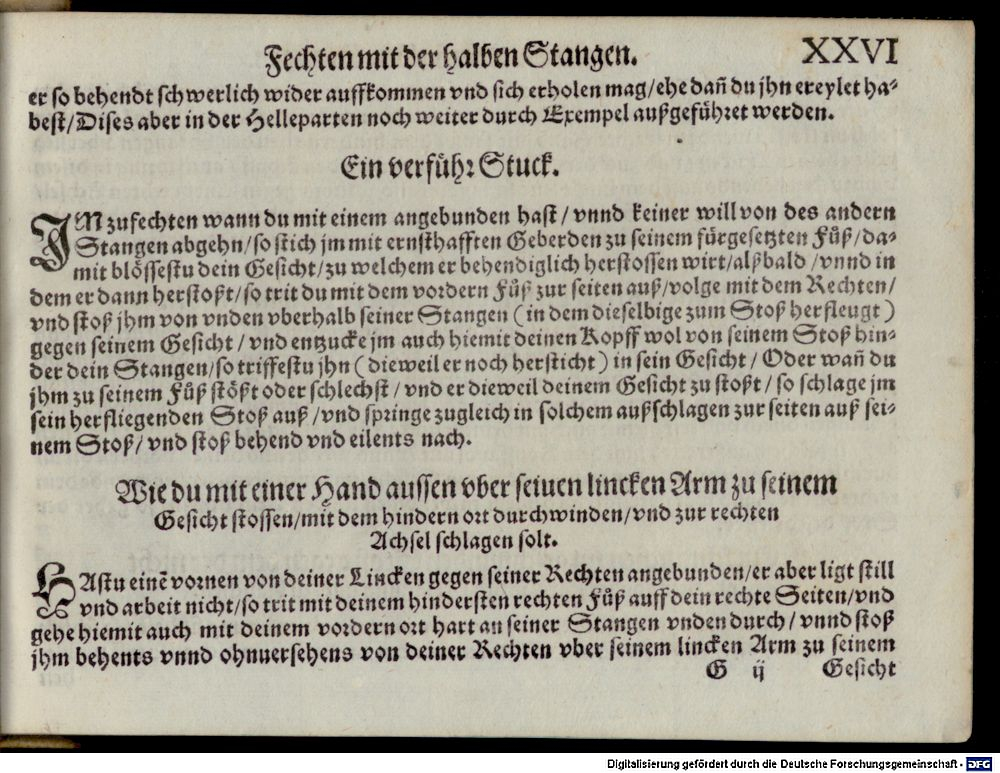 Fechten mit der halben Stangen. XXVI
er so behendt schwerlich wider auffkommen vnd sich erholen mag/ehe dañ du jhn ereylet ha-
best/Dises aber in der Helleparten noch weiter durch Exempel außgeführet werden.
Ein verführ Stuck.
IM zufechten wann du mit einem angebunden hast/ vnnd keiner will von des andern
Stangen abgehn/so stich jm mit ernsthafften Geberden zu seinem fürgesetzten Fůß/da-
mit blössestu dein Gesicht/zu welchem er behendiglich herstossen wirt/alßbald /vnnd in
dem er dann herstoßt/so trit du mit dem vordern Fůß zur seiten auß/volge mit dem Rechten/
vnd stoß jhm von vnden vberhalb seiner Stangen (in dem dieselbige zum Stoß herfleugt)
gegen seinem Gesicht/ vnd entzucke jm auch hiemit deinen Kopff wol von seinem Stoß hin-
der dein Stangen/so triffestu jhn (dieweil er noch hersticht) in sein Gesicht/ Oder wañ du
jhm zu seinem Fůß stößt oder schlechst/ vnd er dieweil deinem Gesicht zu stoßt/ so schlage jm
sein herfliegenden Stoß auß/vnd springe zugleich in solchem außschlagen zur seiten auß sei-
nem Stoß/ vnd stoß behend vnd eilents nach.
Wie du mit einer Hand aussen vber seiuen lincken Arm zu seinem
Gesicht stossen/mit dem hindern ort durchwinden/vnd zur rechten
Achsel schlagen solt.
HAstu einẽ vornen von deiner Lincken gegen seiner Rechten angebunden/er aber ligt still
vnd arbeit nicht/so trit mit deinem hindersten rechten Fůß auff dein rechte Seiten/vnd
gehe hiemit auch mit deinem vordern ort hart an seiner Stangen vnden durch/ vnnd stoß
jhm behents vnnd ohnuersehens von deiner Rechten vber seinem lincken Arm zu seinem
G ij Gesicht
Digitalisierung gefördert durch die Deutsche Forschungsgemeinschaft - DFG